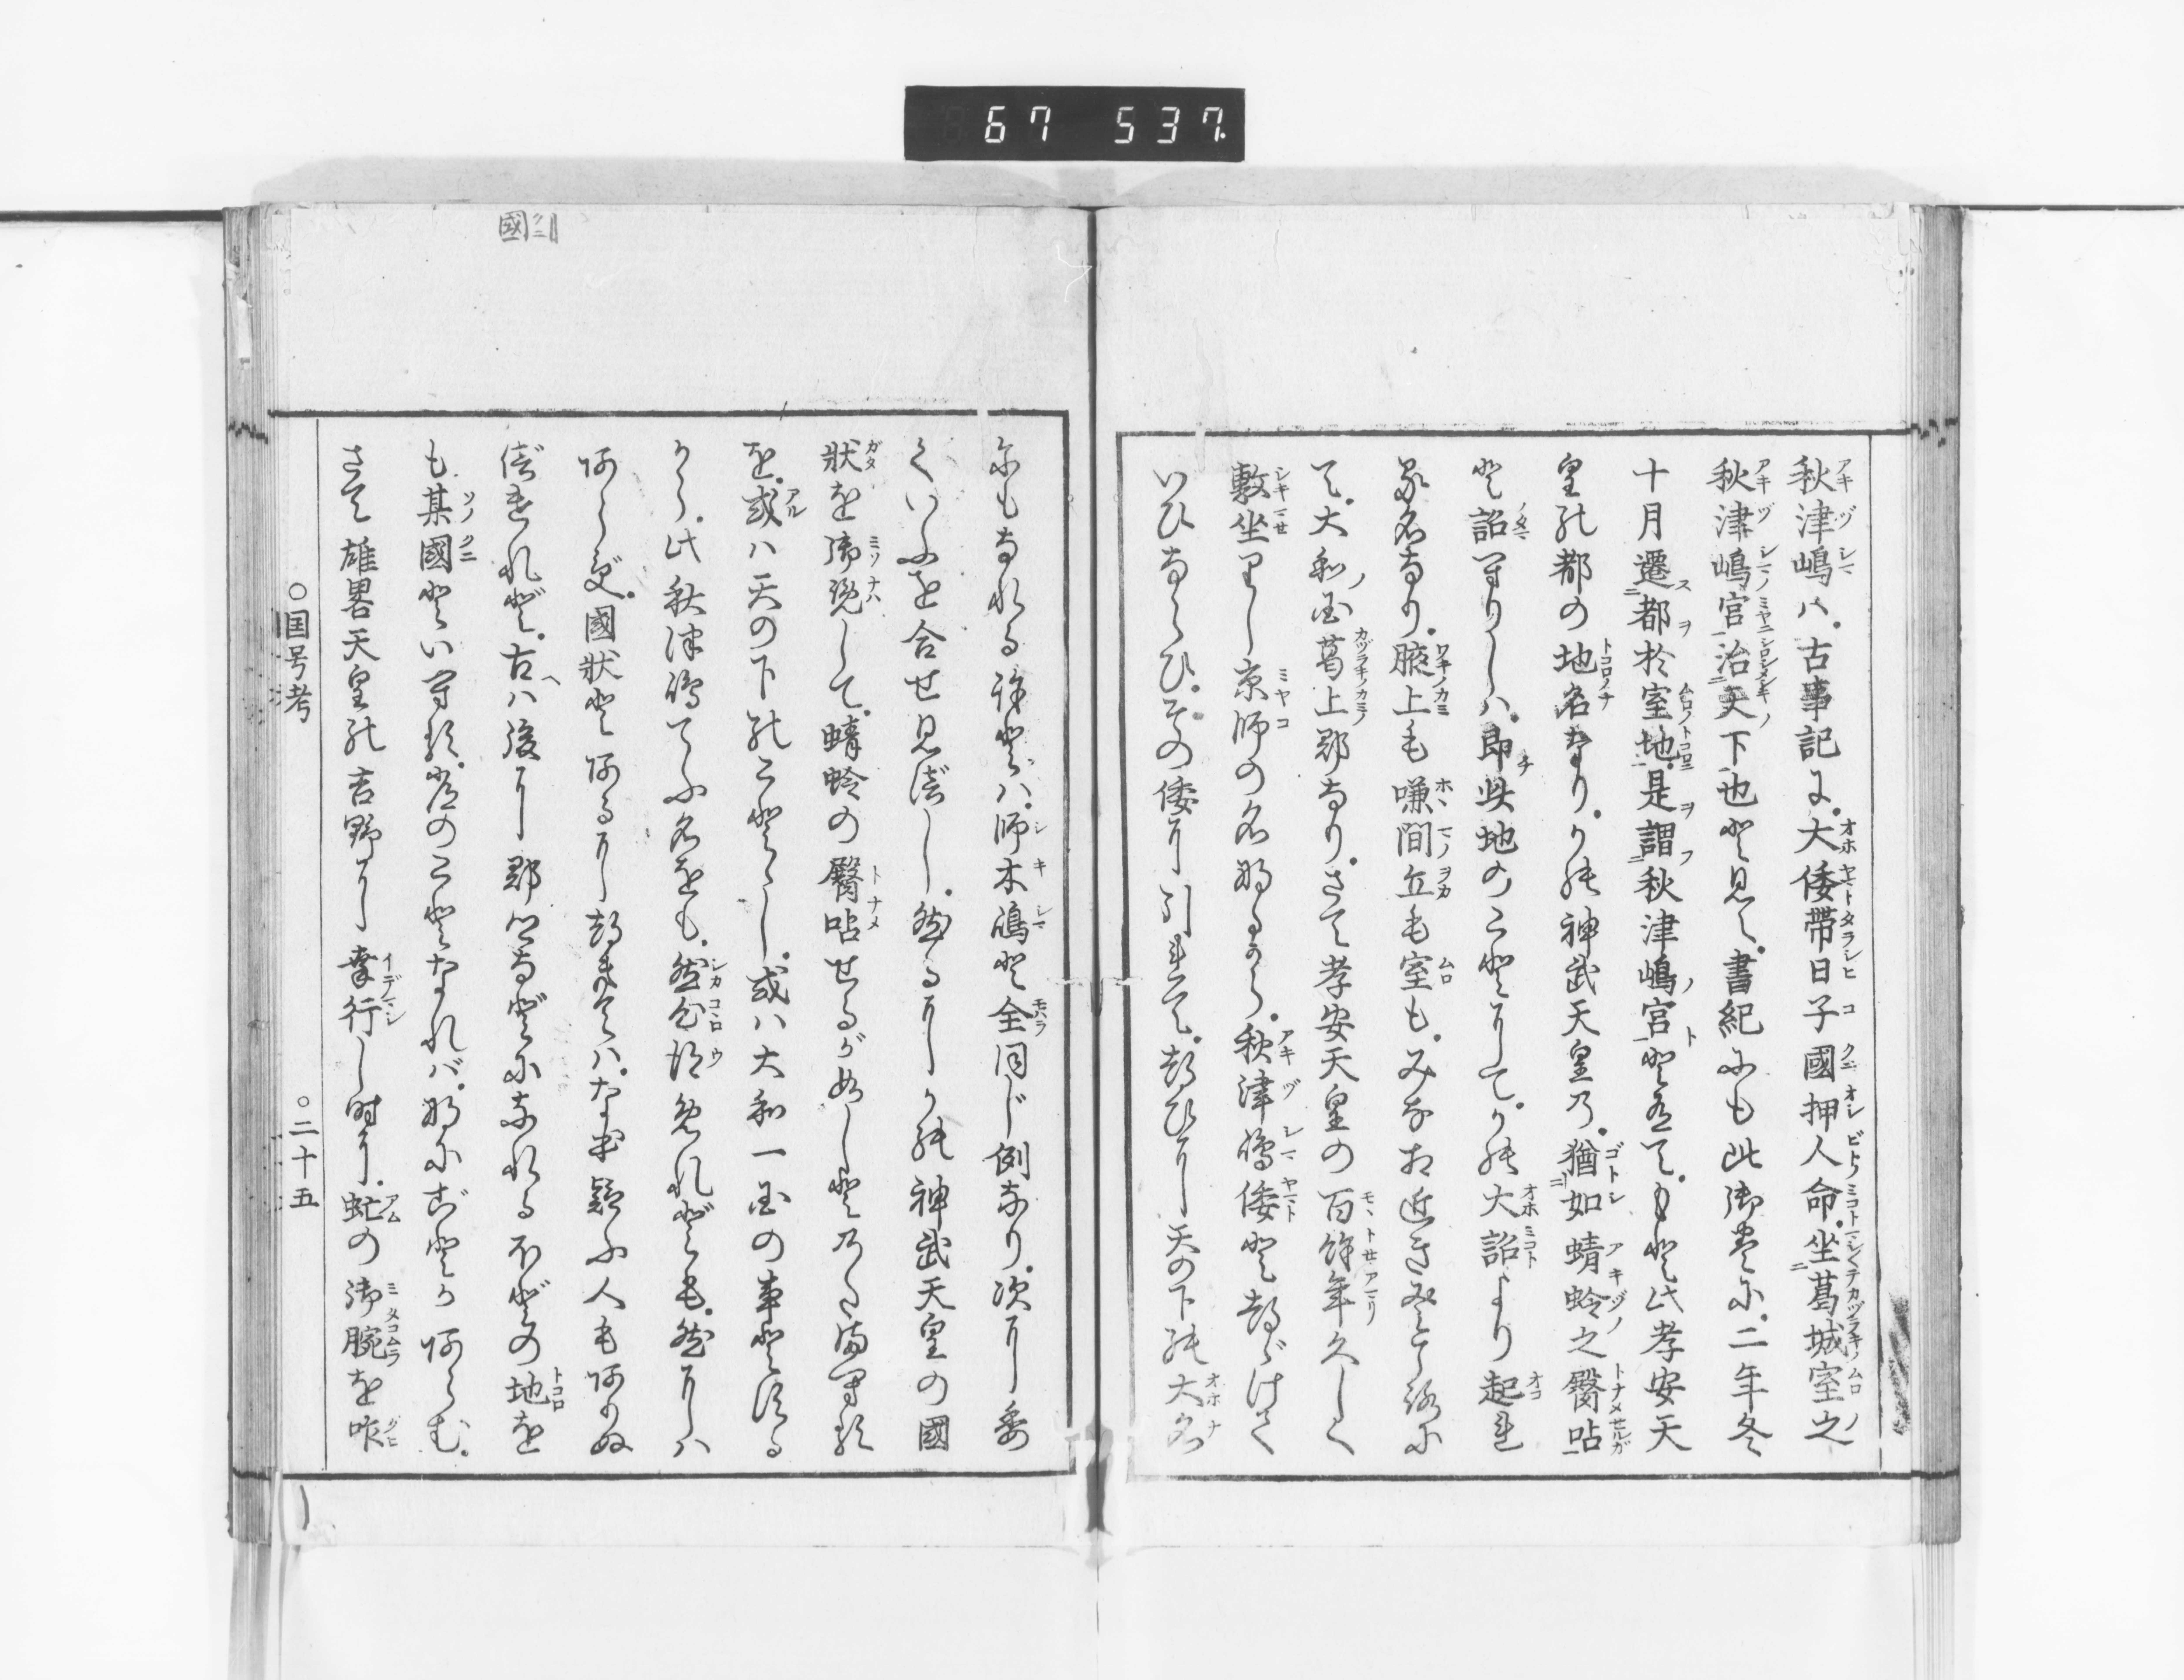 67 537
秋津嶋ハ。古事記に。大倭帶日子國押人命。坐葛城室之
秋津嶋宮治天下也と見え。書紀にも此御巻に。二年冬
十月遷都於室地。是謂秋津嶋宮と有て。もと此孝安天
皇の都の地名なり。かの神武天皇乃。猶如蜻蛉之臀呫
と詔へりしハ。即此地のことにて。かの大詔より起れ
る名なり。腋上も嗛間丘も室も。みなお近きところに
て。大和国葛上郡なり。さて孝安天皇の百餘年久しく
敷坐りし京師の名なるから。秋津嶋倭とつゞけて
いひならひ。その倭に引れて。つひに天の下の大名
にもなれる事ハ。師木嶋と全同じ例なり。次に委
くいふを合せ見べし。然るにかの神武天皇の國
狀を御覽して。蜻蛉の臀呫せるが如しとのたまへる
を。或ハ天の下のことゝし。或ハ大和一国の事とする
から。此秋津嶋てふ名をも。然心得めれども。然にハ
あらず。國狀とあるにつきてハ。なほ疑ふ人もありぬ
べけれど。古ハ後に郡などになれるほどの地を
も。某國といへる。常のことなれバ。なにごとかあらむ。
さて雄畧天皇の吉野に幸行し時に。虻の御腕を咋
國クニ
○国号考
○二十五